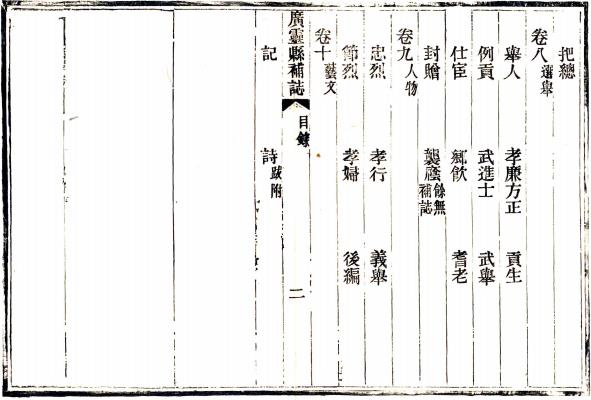 把總
卷八選舉
舉人 孝廉方正 貢生
例貢 武進士 武舉
仕宦 鄉飲 耆老
封贈 襲廕餘無補誌
卷九人物
忠烈 孝行 義舉
節烈 孝婦 後編
卷十藝文
廣靈縣補誌 目錄 二
記 詩跋附